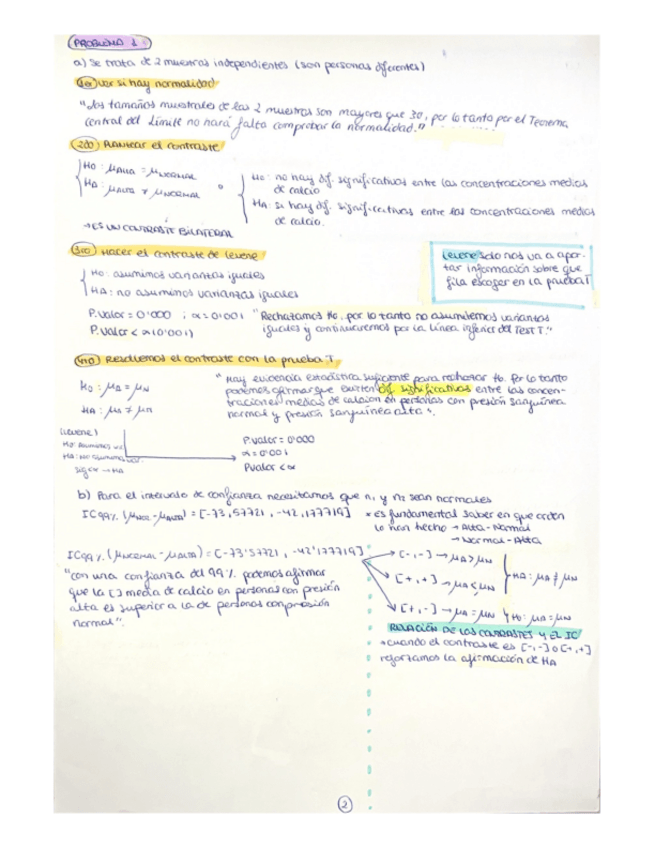 PROBLEMA 1
a) Se trata de 2 muestras independientes (son personas diferentes)
1er ver si hay normalidad
"Los tamaños muestrales de las 2 muestras son mayores que 30, por lo tanto por el Teorema
Central del Límite no hará falta comprobar la normalidad."
2do Plantear el contraste
H0: μALTA = μNORMAL
HA: μALTA ≠ μNORMAL
o
H0: no hay dif. significativas entre las concentraciones medias
de calcio
HA: si hay dif. significativas entre las concentraciones medias
de calcio.
→ ES UN CONTRASTE BILATERAL
3ero Hacer el contraste de Levene
H0: asumimos varianzas iguales
HA: no asumimos varianzas iguales
Levene solo nos va a apor-
tar información sobre que
fila escoger en la prueba T
P.valor = 0'000 ; α = 0'001 "Rechazamos H0, por lo tanto no asumiremos varianzas
P.valor < α (0'001) iguales y continuaremos por la línea inferior del Test T."
4to Resolvemos el contraste con la prueba T
H0: μA = μN
HA: μA ≠ μN
"Hay evidencia estadística suficiente para rechazar H0. Por lo tanto
podemos afirmar que existen dif. significativas entre las concen-
traciones medias de calcio en personas con presión sanguínea
normal y presión sanguínea alta".
(Levene)
H0: Asumimos va.
HA: No asumimos var.
sig < α → HA
P.valor = 0'000
α = 0'001
Pvalor < α
b) Para el intervalo de confianza necesitamos que n1 y n2 sean normales
IC99% (μNOR - μALTA) = [-73'57721, -42'177719]
* es fundamental saber en que orden
lo han hecho → Alta-Normal
→ Normal-Alta
IC99% (μNORMAL - μALTA) = [-73'57721, -42'177719]
[-,-] → μA > μN
[+,+] → μA < μN
HA: μA ≠ μN
[+,-] → μA = μN
H0: μA = μN
"con una confianza del 99% podemos afirmar
que la [ ] media de calcio en personas con presión
alta es superior a la de personas con presión
normal".
RELACIÓN DE LOS CONTRASTES Y EL IC
→ cuando el contraste es [-,-] o [+,+]
reforzamos la afirmación de HA
2